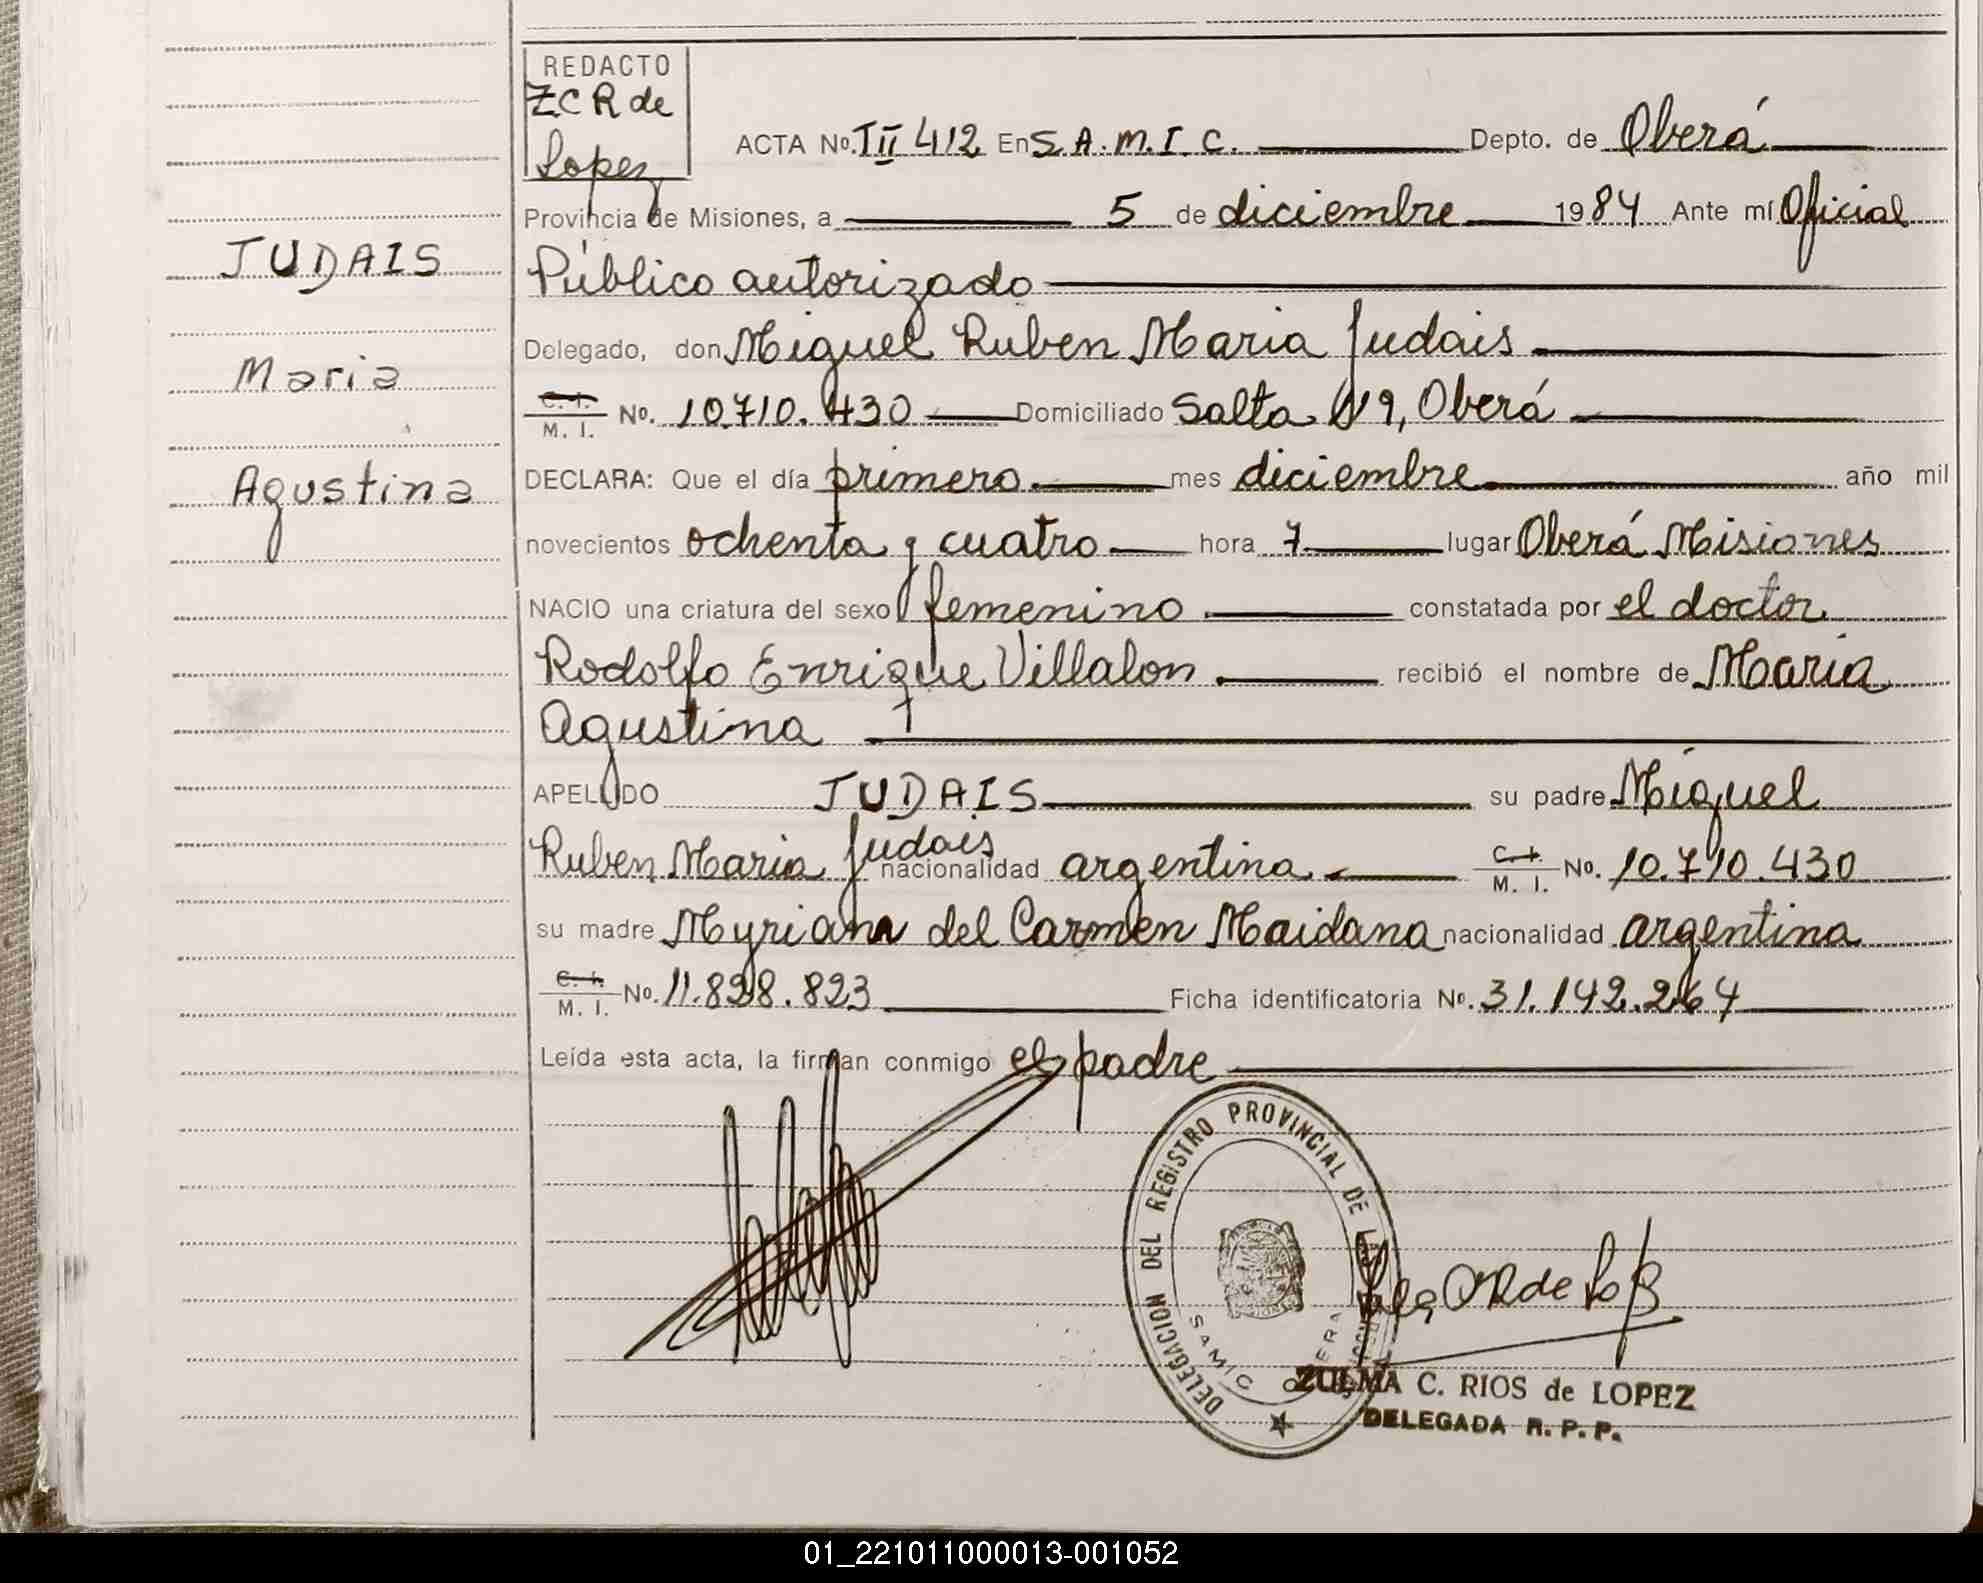 REDACTO
ZCR de
Lopez
ACTA No. TII 412 En S.A.M.I.C. Depto. de Oberá
Provincia de Misiones, a 5 de diciembre 1984 Ante mí Oficial
Público autorizado
Delegado, don Miguel Ruben Maria Judais
C. I. M. I. No. 10.710.430 Domiciliado Salta 119, Oberá
DECLARA: Que el día primero mes diciembre año mil
novecientos ochenta y cuatro hora 7 lugar Oberá Misiones
NACIO una criatura del sexo femenino constatada por el doctor
Rodolfo Enrique Villalon recibió el nombre de María
Agustina
APELLIDO JUDAIS su padre Miguel
Ruben Maria Judais nacionalidad argentina C. I. M. I. No. 10.710.430
su madre Myriam del Carmen Maidana nacionalidad argentina
C. I. M. I. No. 11.828.823 Ficha identificatoria No. 31.142.264
Leída esta acta, la firman conmigo el padre
JUDAIS
Maria
Agustina
DELEGACION DEL REGISTRO PROVINCIAL DE
SAMIC
ZULMA C. RIOS de LOPEZ
DELEGADA R. P. P.
01_221011000013-001052